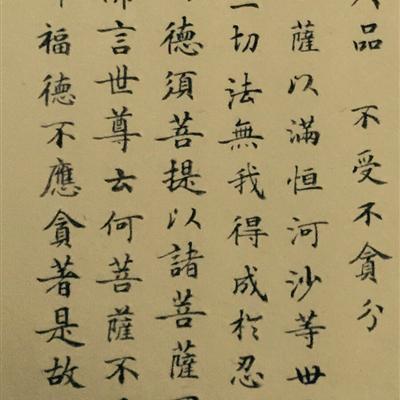 品 不受不貪分
薩以滿恒河沙等世
一切法無我得成於忍
德須菩提以諸菩薩
言世尊云何菩薩不
福德不應貪著是故